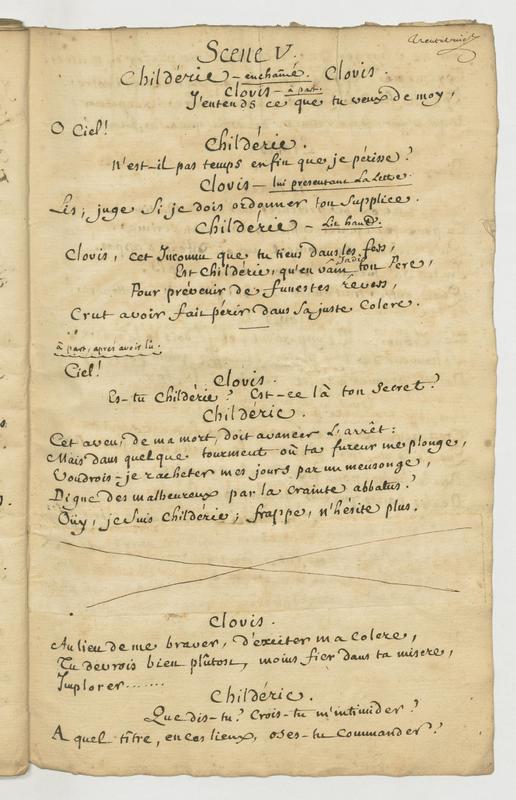 Trentehuict
Scene V.
Childéric – enchaîné. Clovis.
Clovis – à part.
J'entends ce que tu veux de moy,
O Ciel!
Childéric.
N'est-il pas temps enfin que je périsse?
Clovis – lui presentant La Lettre.
Lis; juge si je dois ordonner ton Supplice.
Childéric – Lit haut.
Clovis, cet Inconnu que tu tiens dans les fers,
Est Childéric, qu'en vain jadis ton Pere,
Pour prévenir de funestes revers,
Crut avoir fait périr dans sa juste Colere.
à part, après avoir lû.
Ciel!
Clovis.
Es-tu Childéric? Est-ce là ton Secret?
Childéric.
Cet aveu, de ma mort, doit avancer L'arrêt:
Mais dans quelque tourment où ta fureur me plonge,
Voudrois-je racheter mes jours par un mensonge,
Digne des malheureux par la Crainte abbatus?
Oüy, je suis Childéric; frappe, n'hésite plus.
Clovis.
Au lieu de me braver, d'exciter ma Colere,
Tu devrois bien plûtost, moins fier dans ta misere,
Implorer.......
Childéric.
Que dis-tu? Crois-tu m'intimider?
A quel tître, en ces lieux, oses-tu Commander?